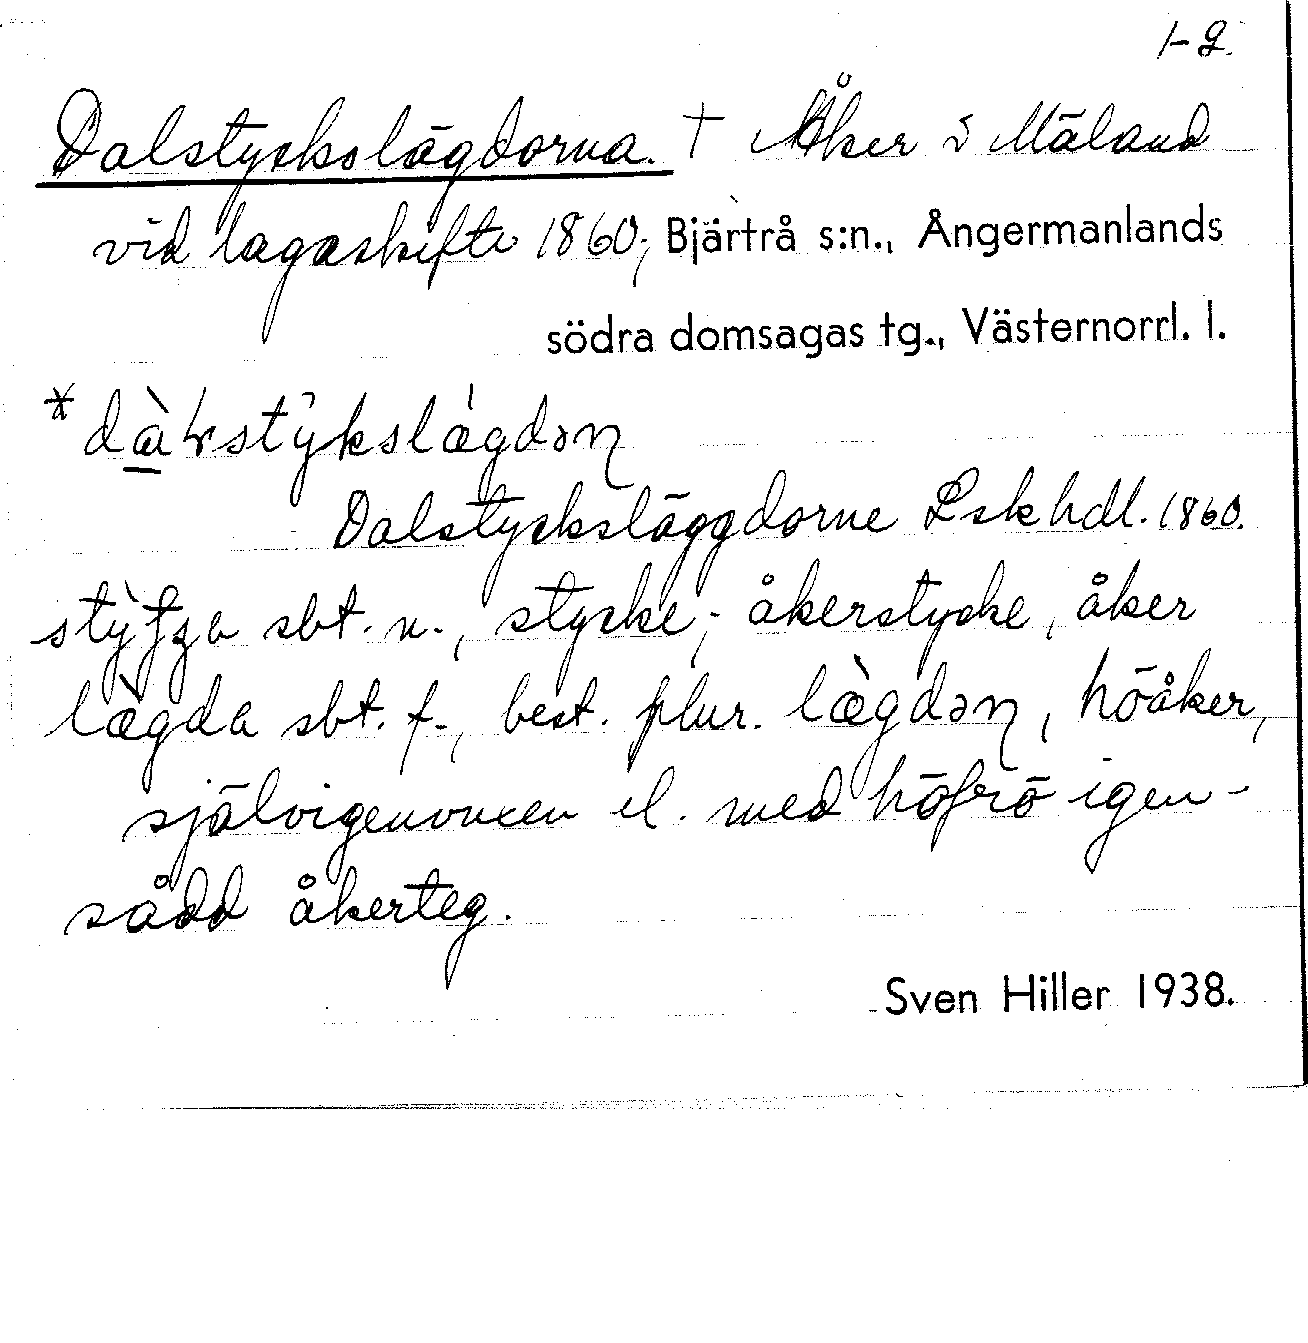 1-2.
Dalstyckslägdorna. † Åker i Mäland
vid lagaskifte 1860; Bjärtrå s:n., Ångermanlands
södra domsagas tg., Västernorrl. l.
Dalstycksläggdorne Lskhdl. 1860.
sbt. n., stycke; åkerstycke, åker
lægda sbt. f., best. plur. lægdəɳ, höåker,
självigenvuxen el. med höfrö igen-
sådd åkerteg.
Sven Hiller 1938.